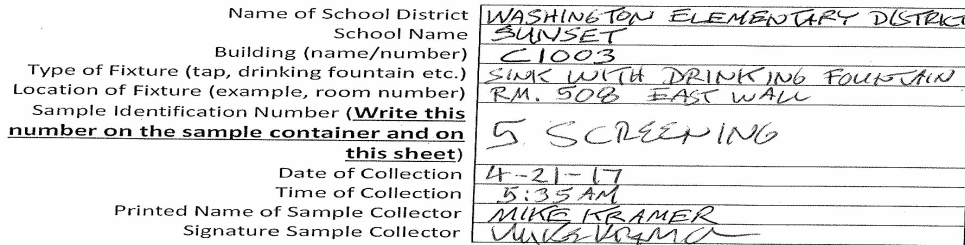 Name of School District WASHINGTON ELEMENTARY DISTRICT
School Name SUNSET
Building (name/number) C1003
Type of Fixture (tap, drinking fountain etc.) SINK WITH DRINKING FOUNTAIN
Location of Fixture (example, room number) RM. 508 EAST WALL
Sample Identification Number (Write this
number on the sample container and on 5. SCREENING
this sheet)
Date of Collection 4-21-17
Time of Collection 5:35 AM
Printed Name of Sample Collector MIKE KRAMER
Signature Sample Collector Mike Kramer